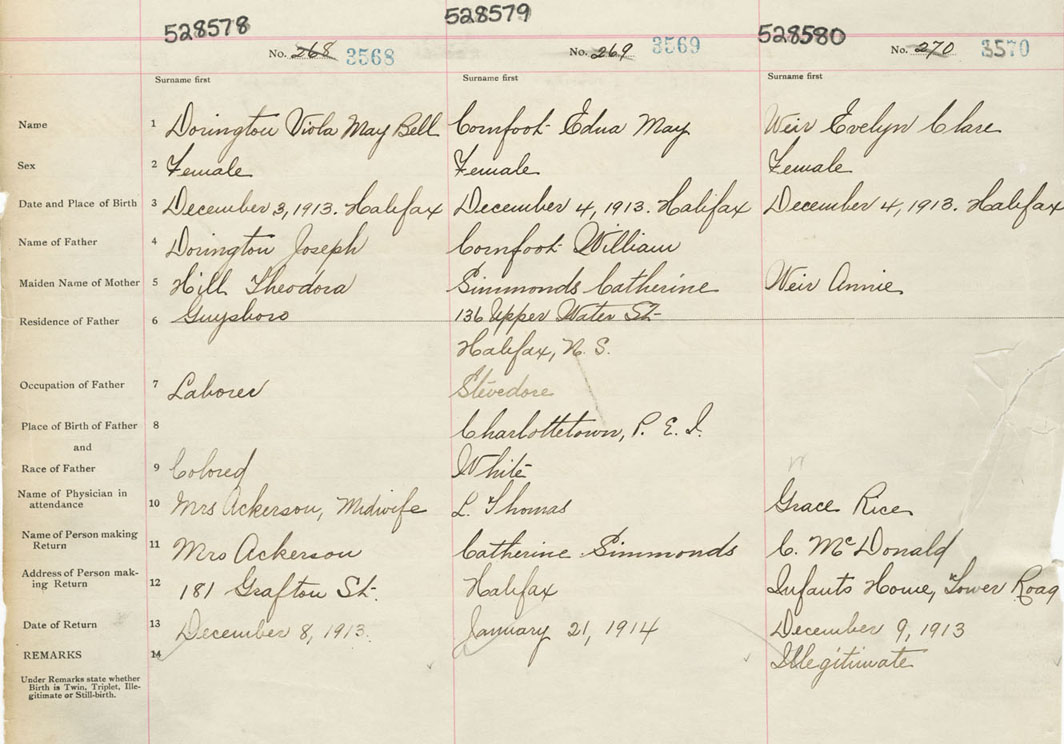 528578 528579 528580
No. 268 3568 No. 269 3569 No. 270 3570
Surname first Surname first Surname first
Name 1 Dorington Viola May Bell Cornfoot Edna May Weir Evelyn Clare
Sex 2 Female Female Female
Date and Place of Birth 3 December 3, 1913. Halifax December 4, 1913. Halifax December 4, 1913. Halifax
Name of Father 4 Dorington Joseph Cornfoot William
Maiden Name of Mother 5 Hill Theodora Simmonds Catherine Weir Annie
Residence of Father 6 Guysboro 136 Upper Water St.
Halifax, N. S.
Occupation of Father 7 Laborer Stevedore
Place of Birth of Father 8 Charlottetown, P. E. I.
and
Race of Father 9 Colored White
Name of Physician in
attendance 10 Mrs Ackerson, Midwife L. Thomas Grace Rice
Name of Person making
Return 11 Mrs Ackerson Catherine Simmonds C. McDonald
Address of Person mak-
ing Return 12 181 Grafton St. Halifax Infants Home, Tower Road
Date of Return 13 December 8, 1913. January 21, 1914 December 9, 1913
REMARKS 14 Illegitimate
Under Remarks state whether
Birth is Twin, Triplet, Ille-
gitimate or Still-birth.